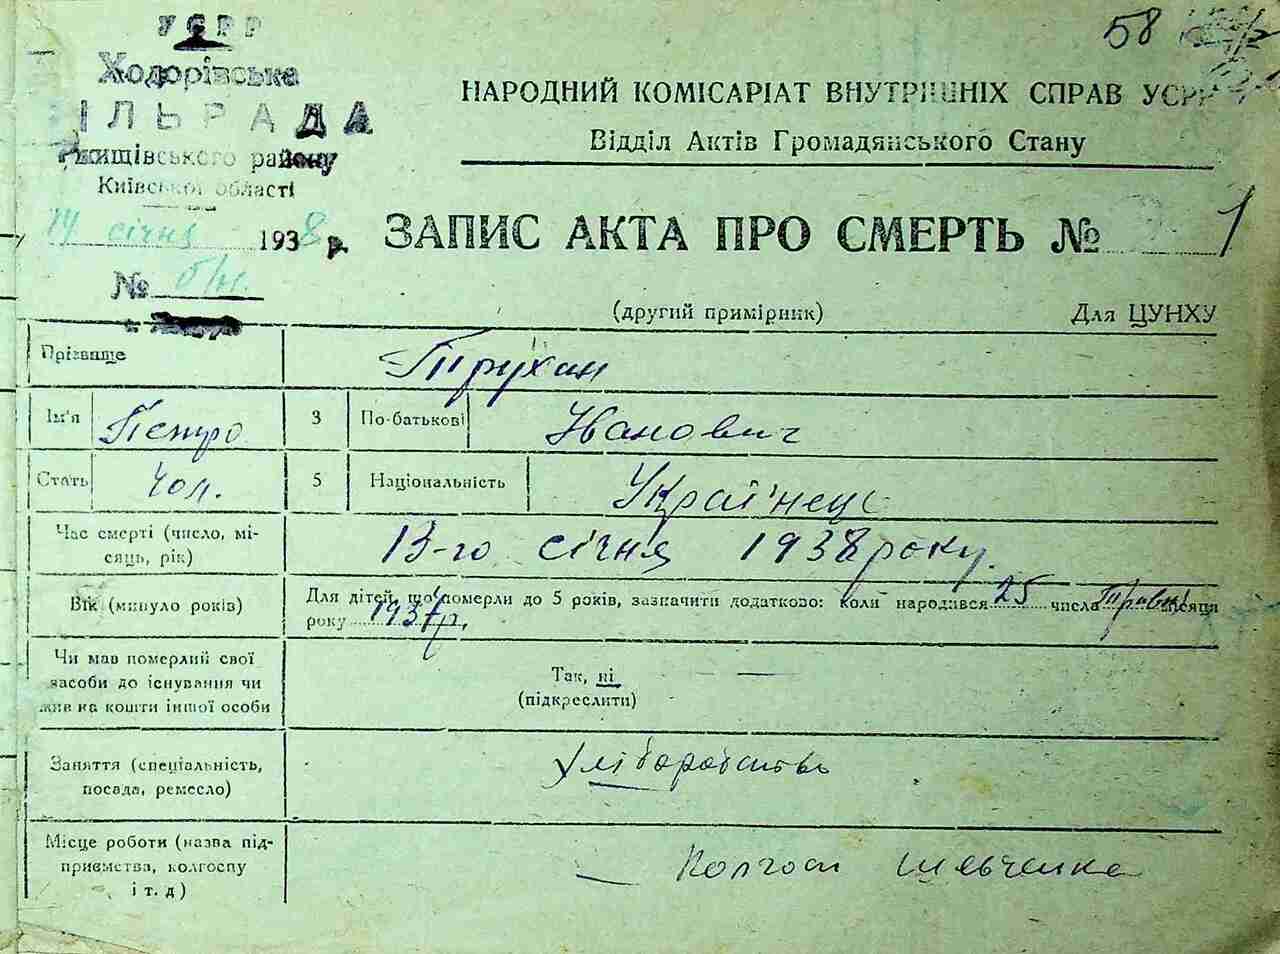 58
УСРР
Ходорівська
ІЛЬРАДА
Ржищівського району
Київської області
14 січня 1938 р.
№ б/н.
НАРОДНИЙ КОМІСАРІАТ ВНУТРІШНІХ СПРАВ УСРР
Відділ Актів Громадянського Стану
ЗАПИС АКТА ПРО СМЕРТЬ № 1
(другий примірник) Для ЦУНХУ
Прізвище Трухан
Ім'я Петро 3 По-батькові Иванович
Стать чол. 5 Національність Украінець
Час смерті (число, мі-
сяць, рік) 13-го січня 1938 року.
Вік (минуло років) Для дітей, що померли до 5 років, зазначити додатково: коли народився 25 числа Травня місяця
року 1937 р.
Чи мав померлий свої
засоби до існування чи
жив на кошти іншої особи
Так, ні
(підкреслити)
Заняття (спеціальність,
посада, ремесло) Хліборобство
Місце роботи (назва під-
приємства, колгоспу
і т. д)
Колгосп Шевченка